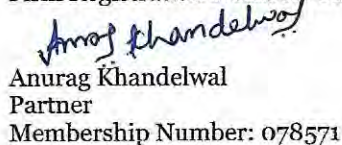 Anurag Khandelwal
Anurag Khandelwal
Partner
Membership Number: 078571